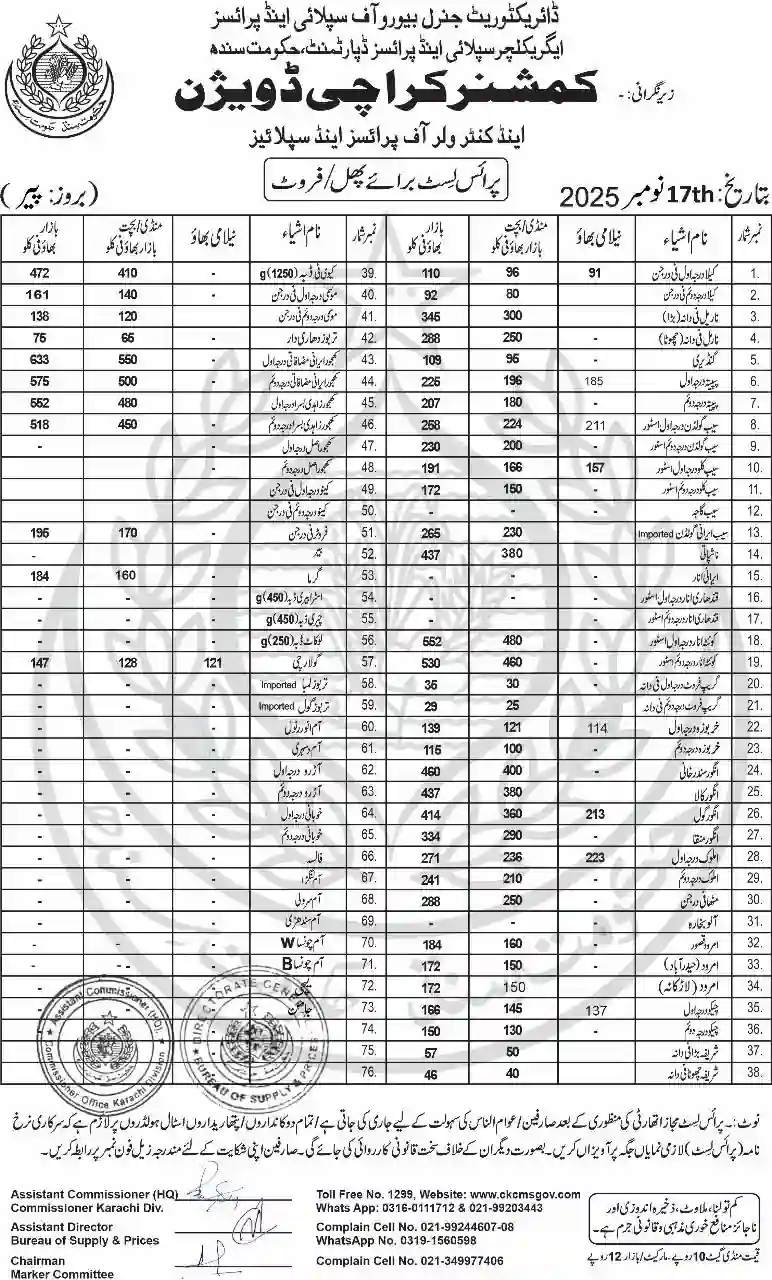 ڈائریکٹوریٹ جنرل بیورو آف سپلائی اینڈ پرائسز
ایگریکلچر سپلائی اینڈ پرائسز ڈپارٹمنٹ، حکومت سندھ
زیر نگرانی: - کمشنر کراچی ڈویژن
اینڈ کنٹرولر آف پرائسز اینڈ سپلائیز
پرائس لسٹ برائے پھل / فروٹ
بتاریخ: 17th نومبر 2025
(بروز: پیر)
نمبر شمار نام اشیاء نیلامی بھاؤ منڈی / بچت بازار بھاؤ فی کلو بازار بھاؤ فی کلو
1. کیلا درجہ اول فی درجن 91 96 110
2. کیلا درجہ دوئم فی درجن - 80 92
3. ناریل فی دانہ (بڑا) - 300 345
4. ناریل فی دانہ (چھوٹا) - 250 288
5. گنڈیری - 95 109
6. پپیتہ درجہ اول 185 196 225
7. پپیتہ درجہ دوئم - 180 207
8. سیب گولڈن درجہ اول اسٹور 211 224 258
9. سیب گولڈن درجہ دوئم اسٹور - 200 230
10. سیب کلو درجہ اول اسٹور 157 166 191
11. سیب کلو درجہ دوئم اسٹور - 150 172
12. سیب گاجہ - - -
13. سیب ایرانی گولڈن Imported - 230 265
14. ناشپاتی 380 437
15. ایرانی انار - - -
16. قندھاری انار درجہ اول اسٹور - - -
17. قندھاری انار درجہ دوئم اسٹور - - -
18. کوئٹہ انار درجہ اول اسٹور - 480 552
19. کوئٹہ انار درجہ دوئم اسٹور - 460 530
20. گریپ فروٹ درجہ اول فی دانہ - 30 35
21. گریپ فروٹ درجہ دوئم فی دانہ - 25 29
22. خربوزہ درجہ اول 114 121 139
23. خربوزہ درجہ دوئم - 100 115
24. انگور سندرخانی - 400 460
25. انگور کالا 380 437
26. انگور گول 213 360 414
27. انگور منقا - 290 334
28. املوک درجہ اول 223 236 271
29. املوک درجہ دوئم - 210 241
30. مٹھا فی درجن - 250 288
31. آلو بخارہ - - -
32. امرود قصور - 160 184
33. امرود (حیدرآباد) - 150 172
34. امرود (لاڑکانہ) - 150 172
35. چیکو درجہ اول 137 145 166
36. چیکو درجہ دوئم - 130 150
37. شریفہ بڑا فی دانہ 50 57
38. شریفہ چھوٹا فی دانہ 40 46
نمبر شمار نام اشیاء نیلامی بھاؤ منڈی / بچت بازار بھاؤ فی کلو بازار بھاؤ فی کلو
39. کیوی فی ڈبہ (1250)g - 410 472
40. موسمی درجہ اول فی درجن - 140 161
41. موسمی درجہ دوئم فی درجن - 120 138
42. تربوز دھاری دار - 65 75
43. کھجور ایرانی مضافاتی درجہ اول - 550 633
44. کھجور ایرانی مضافاتی درجہ دوئم - 500 575
45. کھجور زاہدی بسرا درجہ اول - 480 552
46. کھجور زاہدی بسرا درجہ دوئم - 450 518
47. کھجور اصل درجہ اول - - -
48. کھجور اصل درجہ دوئم - - -
49. کینو درجہ اول فی درجن
50. کینو درجہ دوئم فی درجن
51. فروٹر فی درجن - 170 195
52. بیر - -
53. گرما - 160 184
54. اسٹرابیری ڈبہ (450)g
55. چیری ڈبہ (450)g
56. لوکاٹ ڈبہ (250)g
57. گولارچی 121 128 147
58. تربوز لمبا Imported - - -
59. تربوز گول Imported - - -
60. آم انور رٹول - - -
61. آم دسہری - - -
62. آڑو درجہ اول - - -
63. آڑو درجہ دوئم - - -
64. خوبانی درجہ اول - - -
65. خوبانی درجہ دوئم - - -
66. فالسہ - - -
67. آم لنگڑا - - -
68. آم سرولی - - -
69. آم سندھڑی - - -
70. آم چونسا W - - -
71. آم چونسا B - - -
72. لیچی
73. جامن
74.
75.
76.
Assistant Commissioner (HQ)
Commissioner Office Karachi Division
DIRECTORATE GENERAL
BUREAU OF SUPPLY & PRICES
نوٹ :۔ پرائس لسٹ مجاز اتھارٹی کی منظوری کے بعد صارفین / عوام الناس کی سہولت کے لیے جاری کی جاتی ہے / تمام دوکانداروں / پتھاریداروں اسٹال ہولڈروں پر لازم ہے کہ سرکاری نرخ
نامہ (پرائس لسٹ) لازمی نمایاں جگہ پر آویزاں کریں۔ بصورت دیگر ان کے خلاف سخت قانونی کارروائی کی جائے گی۔ صارفین اپنی شکایت کے لئے مندرجہ زیل فون نمبر پر رابطہ کریں۔
Assistant Commissioner (HQ)
Commissioner Karachi Div.
Assistant Director
Bureau of Supply & Prices
Chairman
Marker Committee
Toll Free No. 1299, Website: www.ckcmsgov.com
Whats App: 0316-0111712 & 021-99203443
Complain Cell No. 021-99244607-08
WhatsApp No. 0319-1560598
Complain Cell No. 021-349977406
کم تولنا، ملاوٹ، ذخیرہ اندوزی اور
ناجائز منافع خوری مذہبی و قانونی جرم ہے۔
قیمت منڈی گیٹ 10 روپے ۔ مارکیٹ / بازار 12 روپے